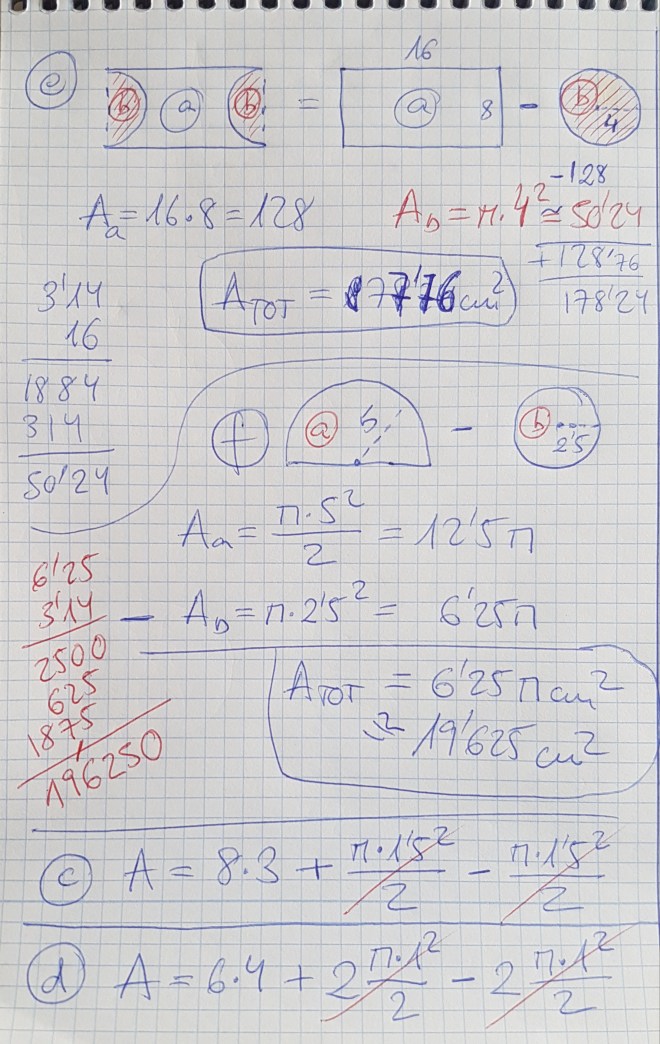 16
e b a b = a 8 - b 4
-128
A_a = 16·8 = 128 A_b = π·4² ≅ 50'24
+128'76
178'24
A_TOT = 77'76 cm²
3'14
16
1884
314
50'24
f a 5 - b 2'5
A_a = π·5²/2 = 12'5π
6'25
3'14
2500
625
1875
196250
- A_b = π·2'5² = 6'25π
A_TOT = 6'25π cm²
≅ 19'625 cm²
c A = 8·3 + π·1'5²/2 - π·1'5²/2
d A = 6·4 + 2 π·1²/2 - 2 π·1²/2